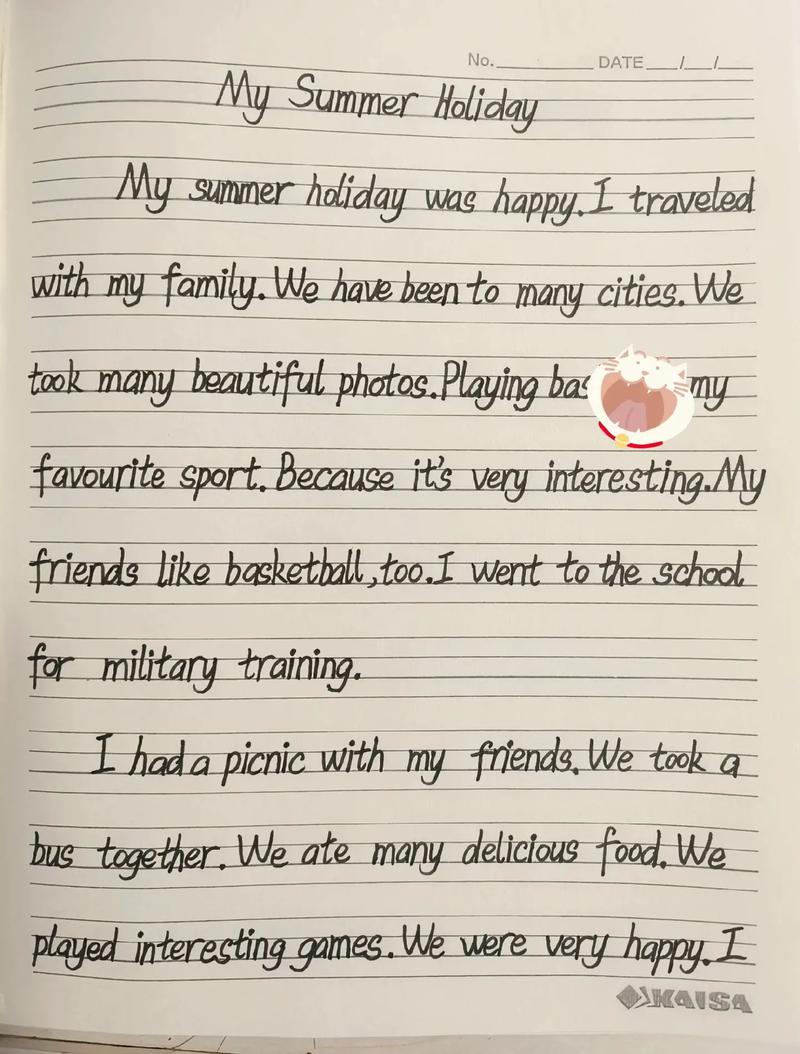 No. DATE / /
My Summer Holiday
My summer holiday was happy. I traveled
with my family. We have been to many cities. We
took many beautiful photos. Playing my
favourite sport. Because it's very interesting. My
friends like basketball, too. I went to the school
for military training.
I had a picnic with my friends. We took a
bus together. We ate many delicious food. We
played interesting games. We were very happy. I
KAISA